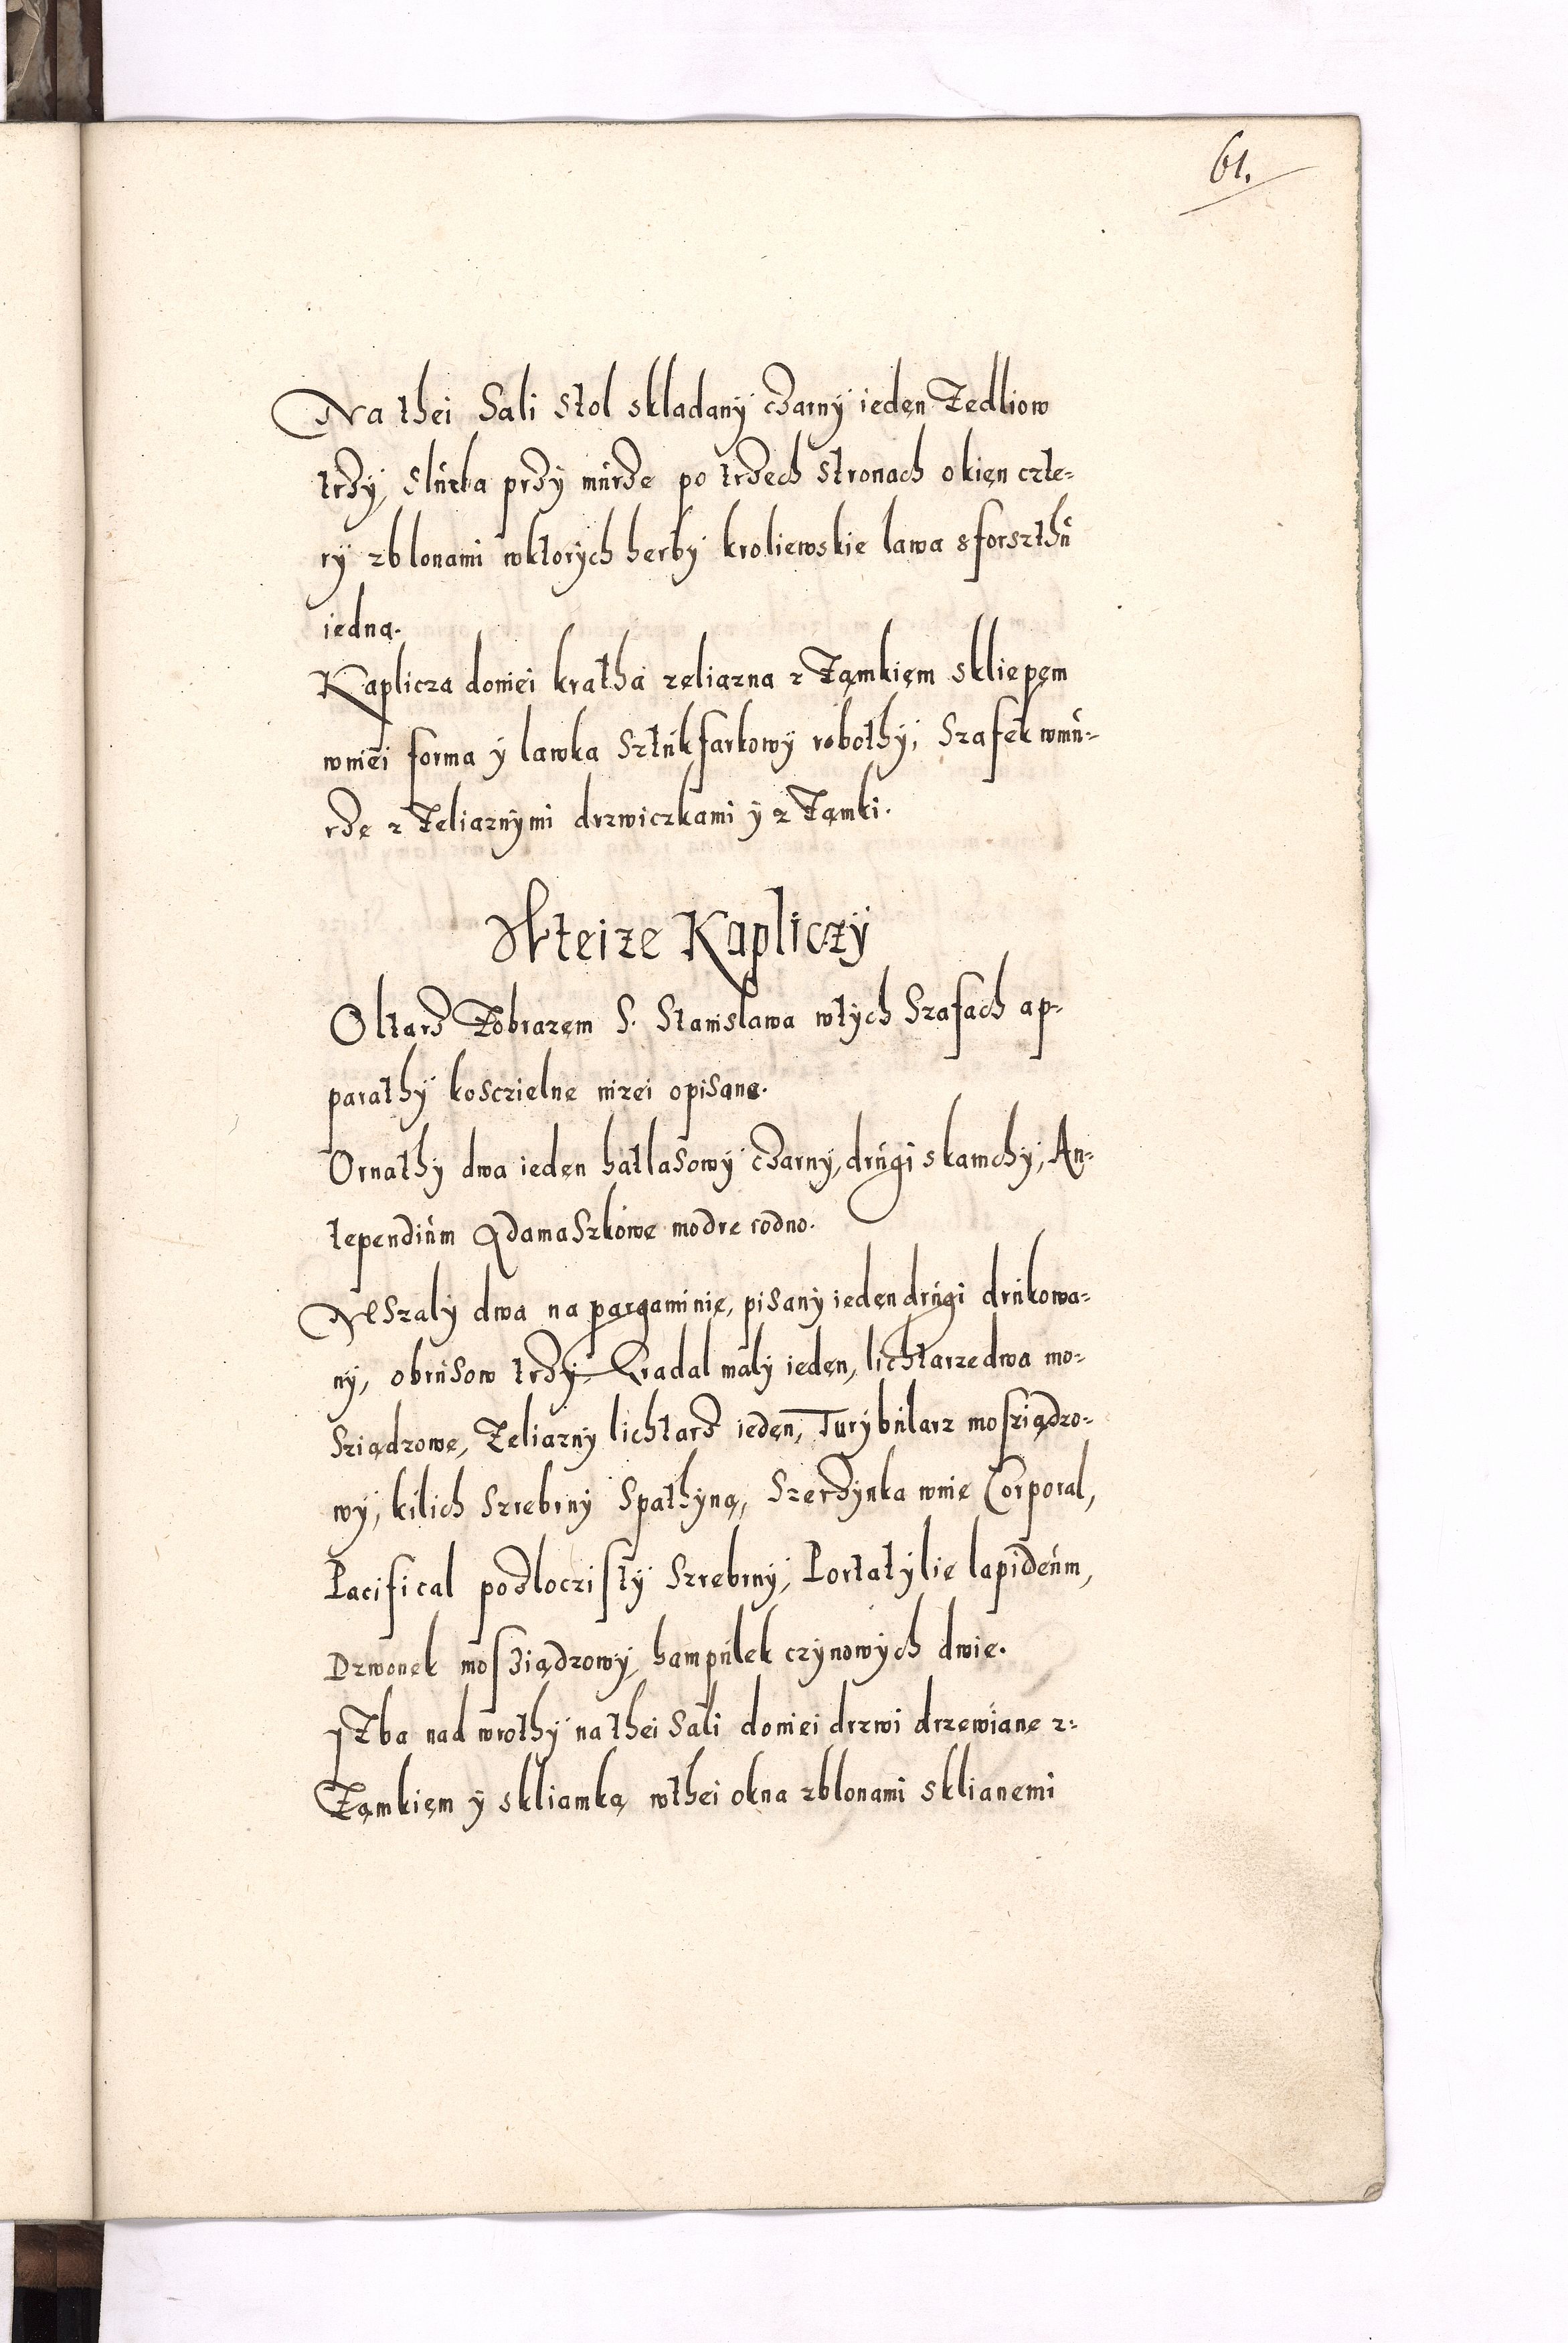 61.
Na thei Sali stol skladany czarny ieden Zedliow
trzy, sluzba przy murze po trzech stronach okien czte-
ry zblonami wktorych herby kroliewskie lawa sforszthu
iedna.
Kaplicza doniei kratha zeliazna z Zamkiem skliepem
wniei forma y lawka Sztukfarkowy robothy, Szafek wmu-
rze z Zeliaznymi drzwiczkami y z Zamki.
Wteize Kapliczy
Oltarz Zobrazem S. Stanislawa wtych Szafach ap-
parathy koscielne nizei opisane.
Ornathy dwa ieden hatlasowy czarny, drugi skamchy, An-
tependium Adamaszkowe modre iedno.
Mszaly dwa na pargaminie, pisany ieden drugi drukowa-
ny, obrusow trzy, Gradal maly ieden, lichtarze dwa mo-
sziądzowe, Zeliazny lichtarz ieden, Turybularz mosziądzo-
wy, kilich Szrebrny Spathyną, Szerzynka wnie Corporal,
Pacifical pozloczisty Szrebrny, Portatylie lapideum,
Dzwonek mosziądzowy, hampulek czynowych dwie.
Yzba nad wrothy na thei Sali doniei drzwi drzewiane z-
Zamkiem y skliamką wthei okna zblonami sklianemi